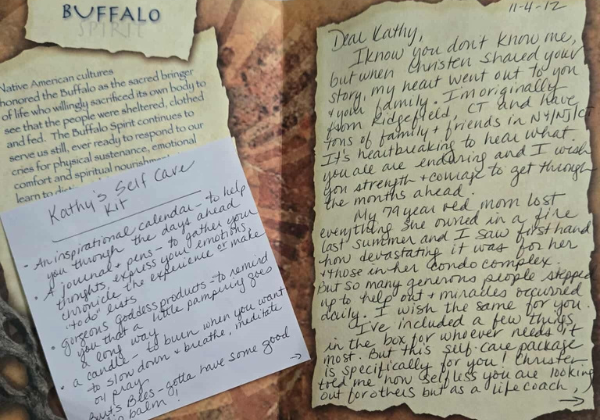 BUFFALO
SPIRIT
Native American cultures
honored the Buffalo as the sacred bringer
of life who willingly sacrificed its own body to
see that the people were sheltered, clothed
and fed. The Buffalo Spirit continues to
serve us still, ever ready to respond to our
cries for physical sustenance, emotional
comfort and spiritual nourishment
learn to
Kathy's Self Care
Kit
- An inspirational calendar - to help
you through the days ahead
• A journal + pens - to gather your
thoughts, express your emotions,
chronicle the experience or make
"to do" lists
• gorgeous goddess products - to remind
you that a little pampering goes
a long way
• a candle - to burn when you want
to slow down + breathe, meditate
or pray
Burt's Bees - gotta have some good
balm!
→
11-4-12
Dear Kathy,
I know you don't know me,
but when christen shared your
story, my heart went out to you
+ your family. I'm originally
from Ridgefield, CT and have
tons of family + friends in NY/NJ/CT
It's heartbreaking to hear what
you all are enduring and I wish
you strength + courage to get through
the months ahead.
My 79 year old mom lost
everything she owned in a fire
last summer and I saw firsthand
how devastating it was for her
+ those in her condo complex.
But so many generous people stepped
up to help out + miracles occurred
daily. I wish the same for you.
I've included a few things
in the box for whoever needs it
most. But this self-care package
is specifically for you! Christen
told me how selfless you are looking
out for others but as a life coach,
→